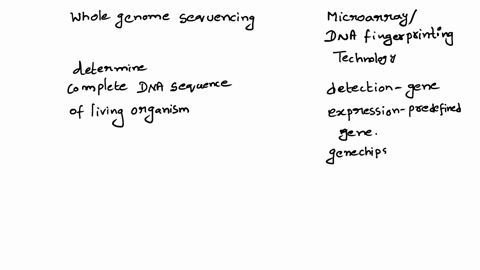 Whole genome sequencing
determine
complete DNA sequence
of living organism
Microarray/
DNA fingerprinting
Technology
detection-gene
expression-predefined
gene.
genechips